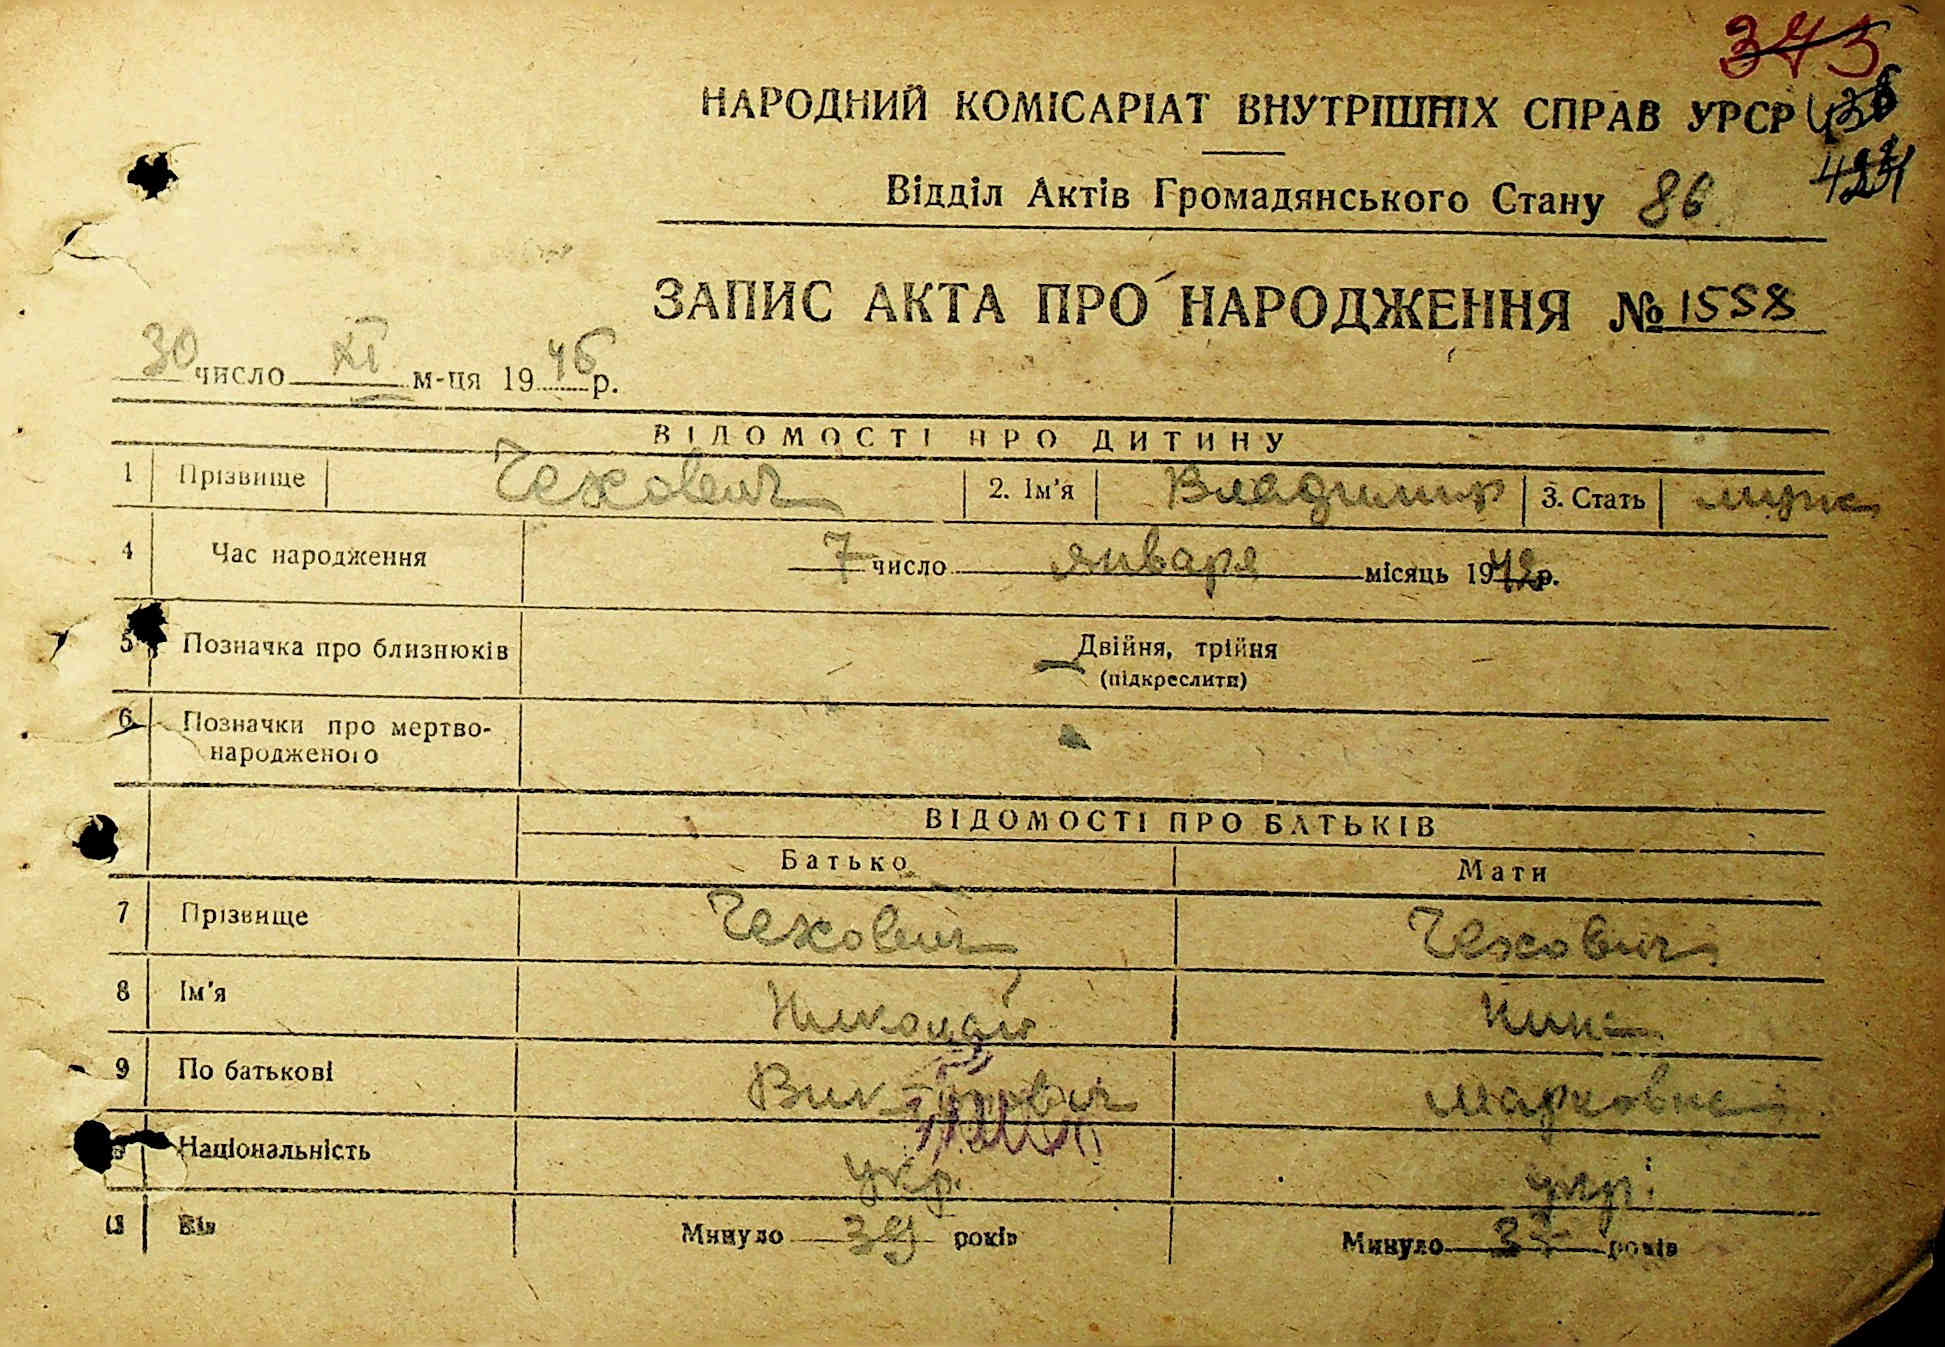 373
НАРОДНИЙ КОМІСАРІАТ ВНУТРІШНІХ СПРАВ УРСР
Відділ Актів Громадянського Стану 86
ЗАПИС АКТА ПРО НАРОДЖЕННЯ № 1558
30 число XI м-ця 1946 р.
ВІДОМОСТІ ПРО ДИТИНУ
1 Прізвище Чехович 2. Ім'я Владимир 3. Стать муж
4 Час народження 7 число января місяць 1942 р.
5 Позначка про близнюків Двійня, трійня
(підкреслити)
6 Позначки про мертво-
народженого
ВІДОМОСТІ ПРО БАТЬКІВ
Батько Мати
7 Прізвище Чехович Чехович
8 Ім'я Николай Нина
9 По батькові Викторович Марковна
Національність укр. укр.
Вік Минуло 39 років Минуло 37 років